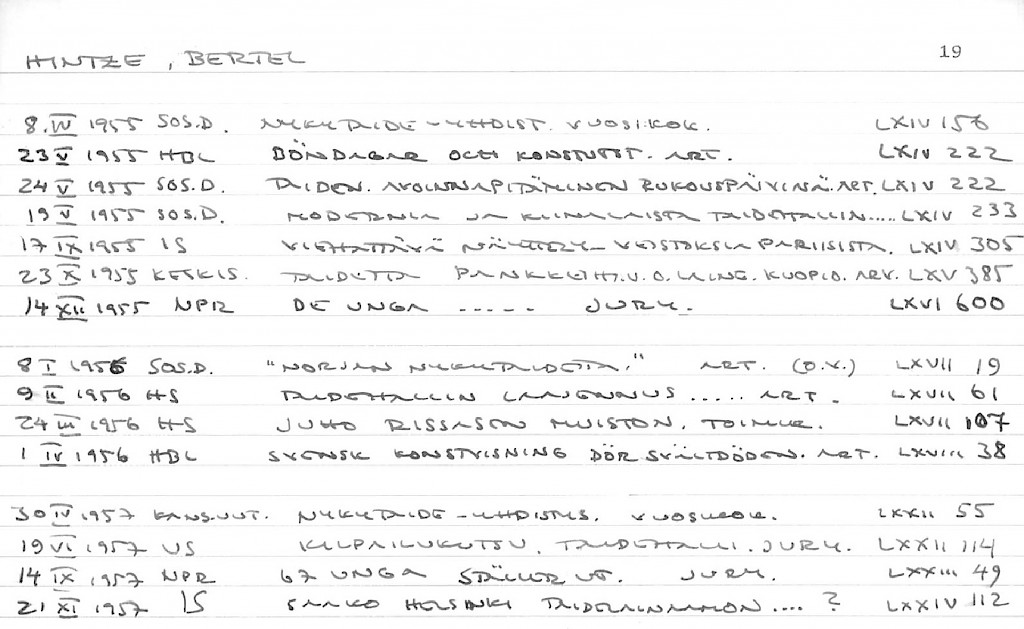 HINTZE, BERTEL 19
8.IV 1955 SOS.D. NYKYTAIDE-YHDIST. VUOSIKOK. LXIV 156
23 V 1955 HBL BÖNDAGAR OCH KONSTUTST. ART. LXIV 222
24 V 1955 SOS.D. TAIDEN. AVOINNAPITÄMINEN RUKOUSPÄIVINÄ. ART. LXIV 222
19 V 1955 SOS.D. MODERNIA JA KIINALAISTA TAIDEHALLIN.... LXIV 233
17 IX 1955 IS VIEHÄTTÄVÄ NÄYTTELY- VEISTOKSIA PARIISISTA. LXIV 305
23 X 1955 KESKIS. TAIDETTA PANKKEIHI. V.O. LAINE. KUOPIO. ARV. LXV 385
14 XII 1955 NPR DE UNGA ..... JURY. LXVI 600
8 I 1956 SOS.D. "NORJAN NYKYTAIDETTA." ART. (O.V.) LXVII 19
9 II 1956 HS TAIDEHALLIN LAAJENNUS ..... ART. LXVII 61
24 III 1956 HS JUHO RISSASEN MUISTON. TOIMIK. LXVII 107
1 IV 1956 HBL SVENSK KONSTVISNING DÖR SVÄLTDÖDEN. ART. LXVIII 38
30 IV 1957 KANS.UUT. NYKYTAIDE-YHDISTYS. VUOSIKOK. LXXII 55
19 VI 1957 US KILPAILUKUTSU. TAIDEHALLI. JURY. LXXII 114
14 IX 1957 NPR 67 UNGA STÄLLER UT. JURY. LXXIII 49
21 XI 1957 IS SAAKO HELSINKI TAIDELAINAAMON....? LXXIV 112